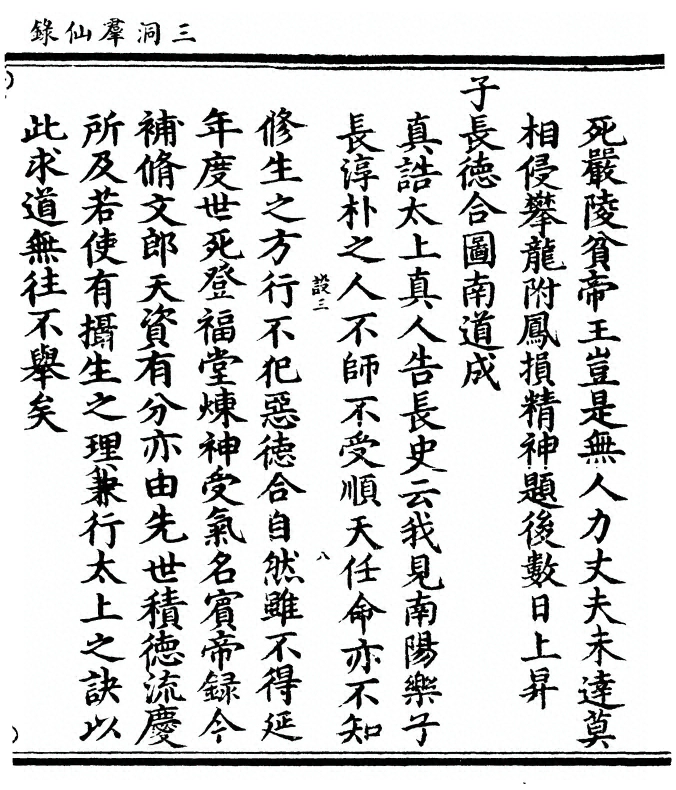 三洞羣仙錄
死嚴陵貧帝王豈是無人力丈夫未達莫
相侵攀龍附鳳損精神題後數日上昇
子長德合圖南道成
真誥太上真人告長史云我見南陽樂子
長淳朴之人不師不受順天任命亦不知
設三 八
修生之方行不犯惡德合自然雖不得延
年度世死登福堂煉神受氣名賓帝録今
補脩文郎天資有分亦由先世積德流慶
所及若使有攝生之理兼行太上之訣以
此求道無往不舉矣